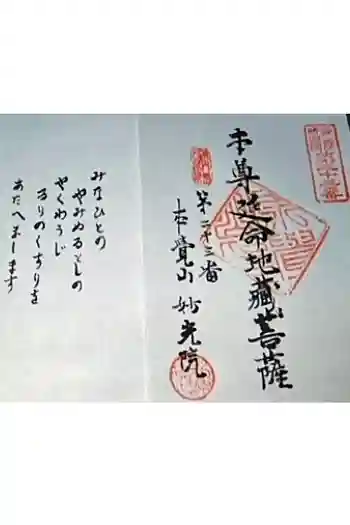 本尊延命地蔵菩薩
第二十三番
本覺山妙光院
みなひとの
やみぬるとしの
やくわうじ
るりのくすりを
あたへまします